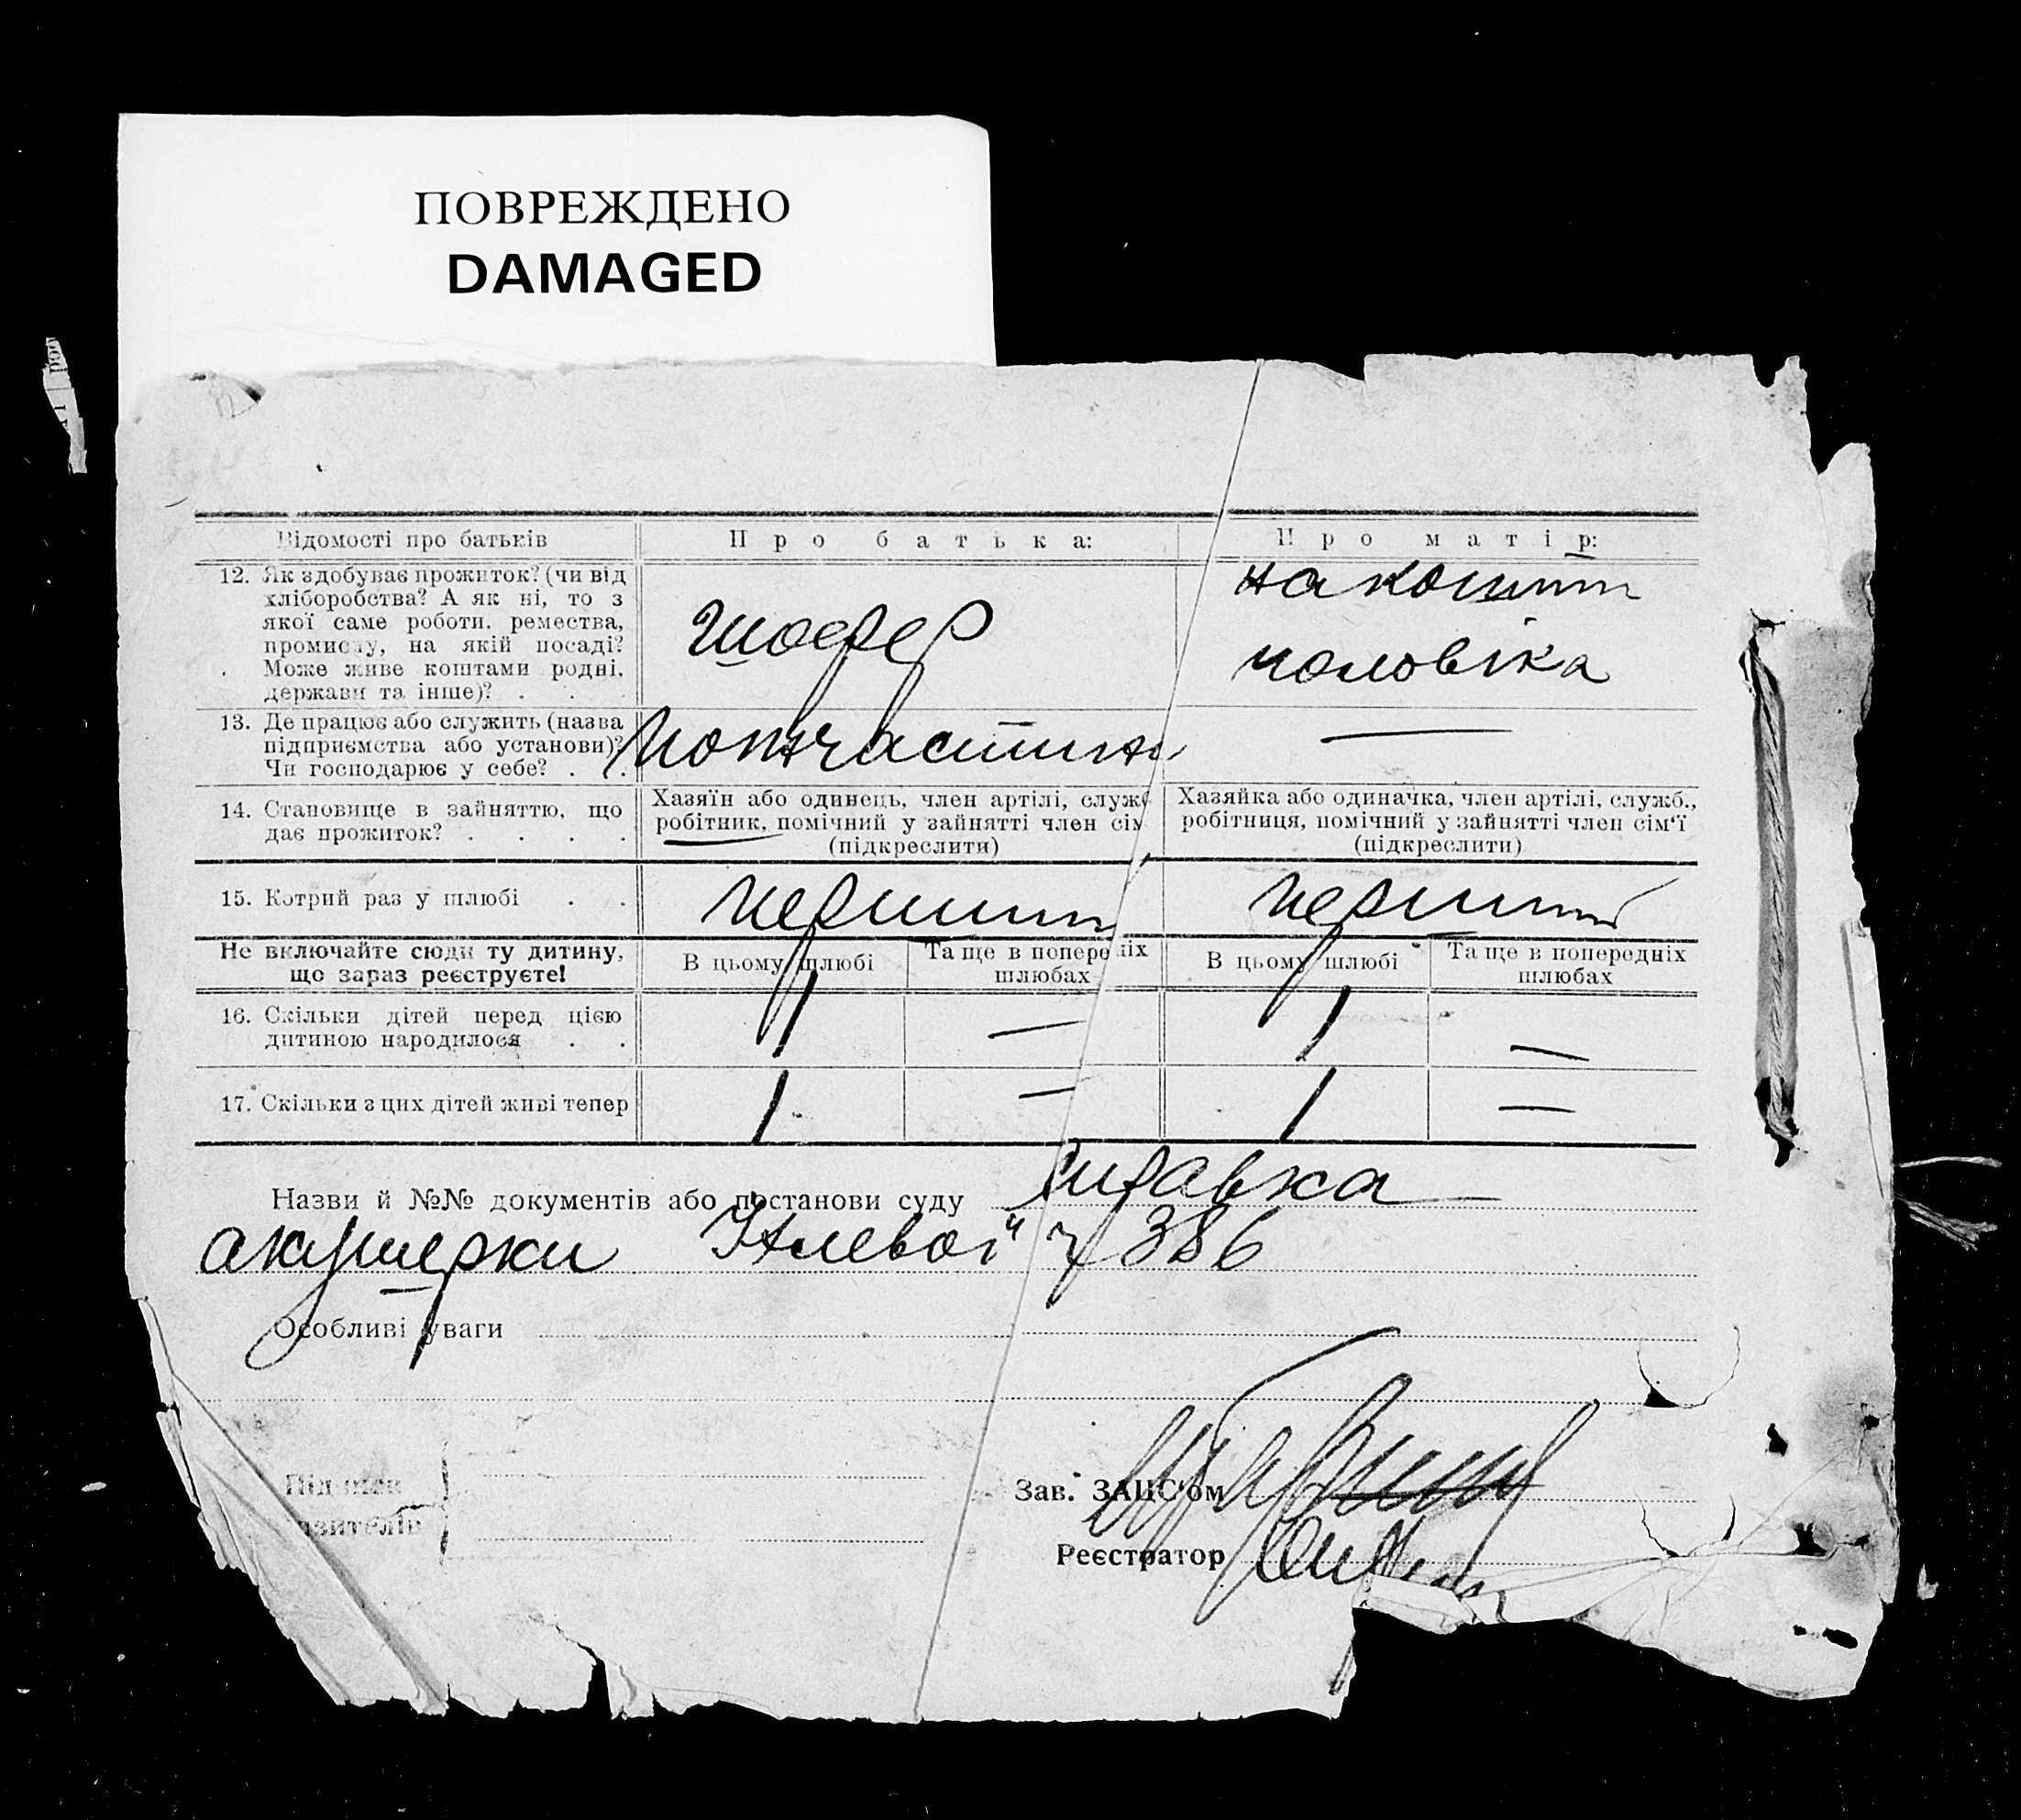 ПОВРЕЖДЕНО
DAMAGED
Відомості про батьків
Про батька:
Про матір:
12. Як здобуває прожиток? (чи від
хліборобства? А як ні, то з
якої саме роботи. ремества,
промислу, на якій посаді?
Може живе коштами родні,
держави та інше)? . . .
шофер
на кошти
чоловіка
13. Де працює або служить (назва
підприємства або установи)?
Чи господарює у себе? . .
—
14. Становище в зайняттю, що
дає прожиток? . . . .
Хазяїн або одинець, член артілі, служб
робітник, помічний у зайнятті член сім
(підкреслити)
Хазяйка або одиначка, член артілі, служб.,
робітниця, помічний у зайнятті член сім'ї
(підкреслити)
15. Котрий раз у шлюбі . .
перший
перший
Не включайте сюди ту дитину,
що зараз реєструєте!
В цьому шлюбі
Та ще в попередніх
шлюбах
В цьому шлюбі
Та ще в попередніх
шлюбах
16. Скільки дітей перед цією
дитиною народилося . .
1 — 1 —
17. Скільки з цих дітей живі тепер
1 — 1 —
Назви й №№ документів або постанови суду справка
акушерки ч 386
Особливі уваги
Підписи
Зав. ЗАЦС'ом
Реєстратор